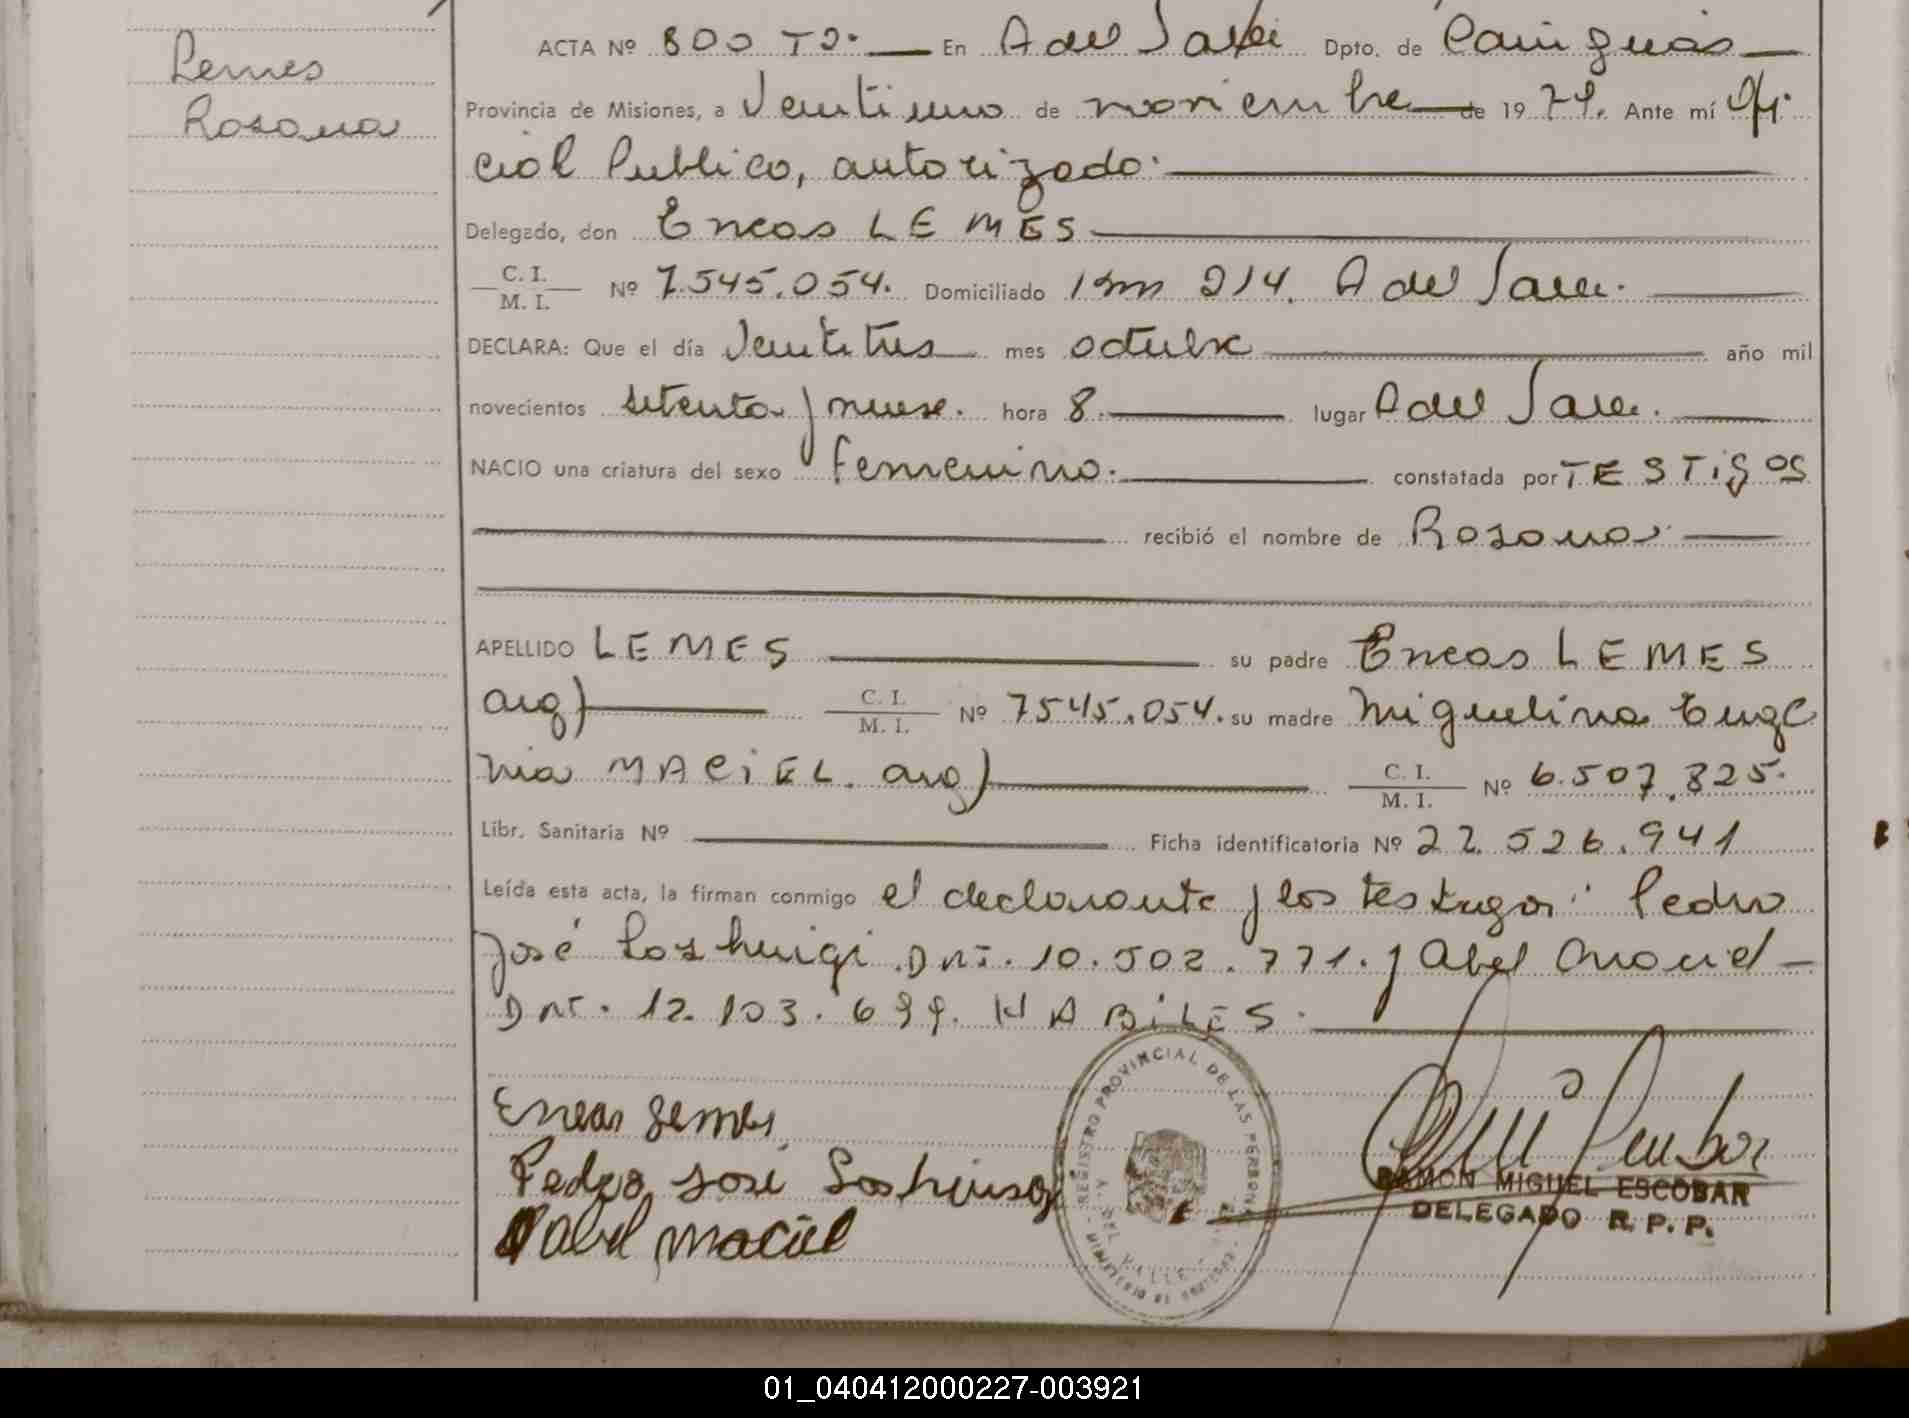 Lemes
Rosana
ACTA Nº 800 Tº. En A del Valle Dpto. de Cainguás
Provincia de Misiones, a Veintiuno de noviembre de 1979. Ante mí Ofi
cial Publico, autorizado.
Delegado, don Eneas LEMES
C. I.
M. I. Nº 7.545.054. Domiciliado Km 214. A del Valle.
DECLARA: Que el día Veintitres mes octubre año mil
novecientos setenta y nueve. hora 8. lugar A del Valle.
NACIO una criatura del sexo femenino. constatada por TESTigos
recibió el nombre de Rosana
APELLIDO LEMES su padre Eneas LEMES
arg) C. I.
M. I. Nº 7545.054. su madre Miguelina Euge
nia MACiEL. arg) C. I.
M. I. Nº 6.507.825.
Libr. Sanitaria Nº Ficha identificatoria Nº 27.526.941
Leída esta acta, la firman conmigo el declarante y los testigos: Pedro
José DNI. 10.502.771. y Abel
DNI. 12.103.699. HABiLES.
Eneas Lemes
Pedro José
Abel Maciel
REGISTRO PROVINCIAL DE LAS PERSONAS
A. DEL VALLE
MINISTERIO DE GOBIERNO
RAMON MIGUEL ESCOBAR
DELEGADO R. P. P.
01_040412000227-003921